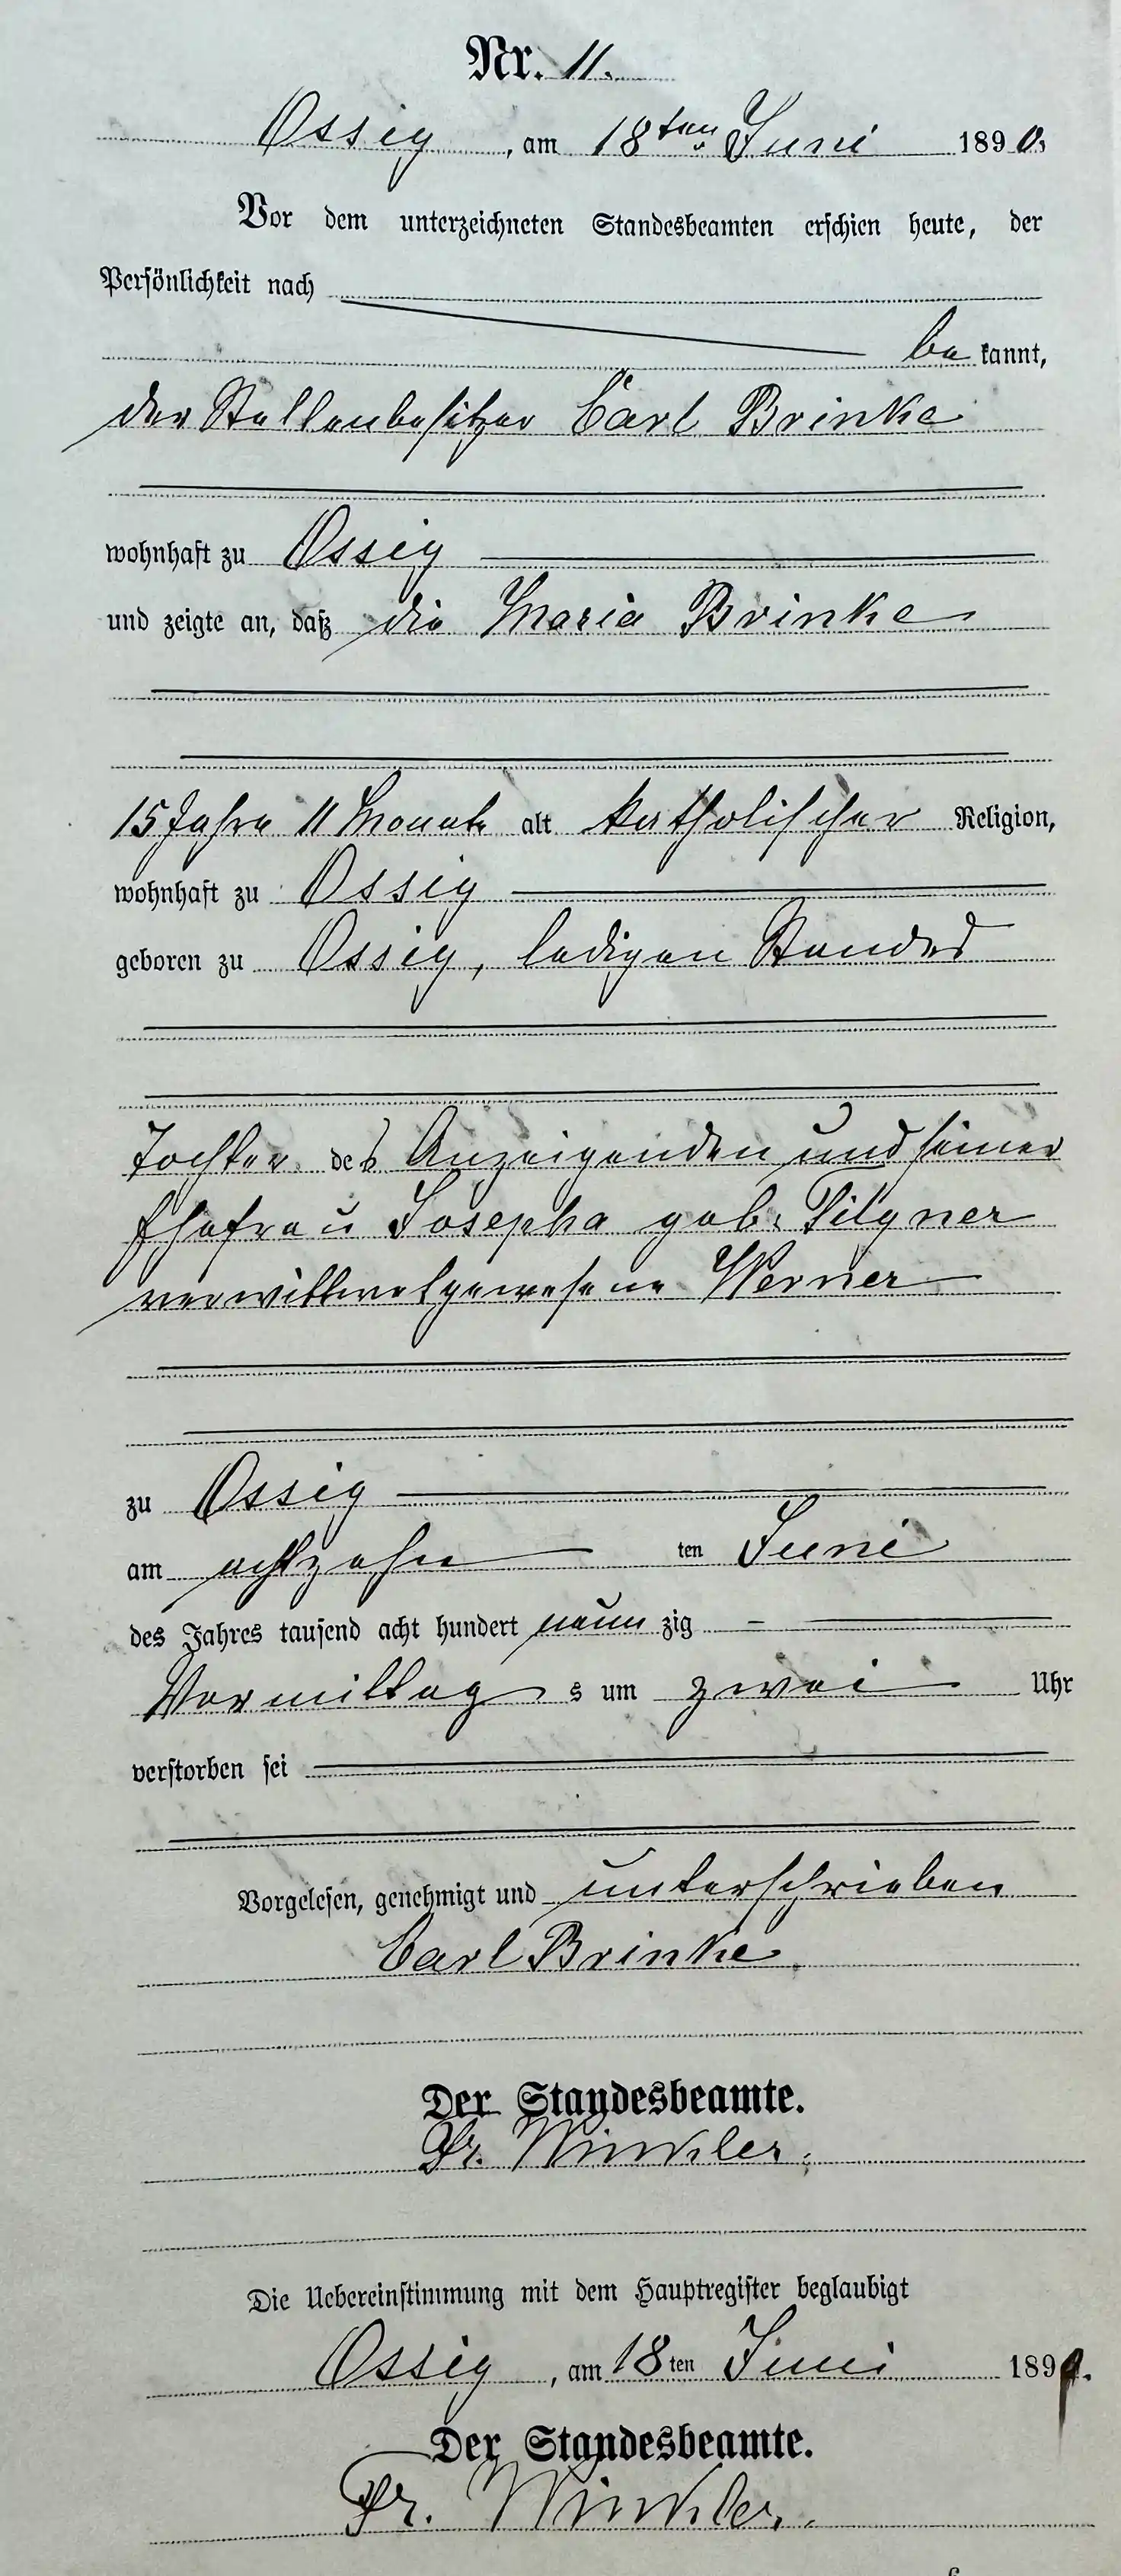 Nr. 11.
Ossig, am 18ten Juni 1890.
Vor dem unterzeichneten Standesbeamten erschien heute, der
Persönlichkeit nach
bekannt,
der Stellenbesitzer Carl Brinke
wohnhaft zu Ossig
und zeigte an, daß die Maria Brinke
15 Jahre 11 Monate alt katholischer Religion,
wohnhaft zu Ossig
geboren zu Ossig, ledigen Standes
Tochter des Anzeigenden und seiner
Ehefrau Josepha geb. Pilgner
verwittwetgewesene Werner
zu Ossig
am achtzehn ten Juni
des Jahres tausend acht hundert neunzig
Vormittags um zwei Uhr
verstorben sei
Vorgelesen, genehmigt und unterschrieben
Carl Brinke.
Der Standesbeamte.
Fr. Winkler.
Die Uebereinstimmung mit dem Hauptregister beglaubigt
Ossig, am 18ten Juni 1890.
Der Standesbeamte.
Fr. Winkler.